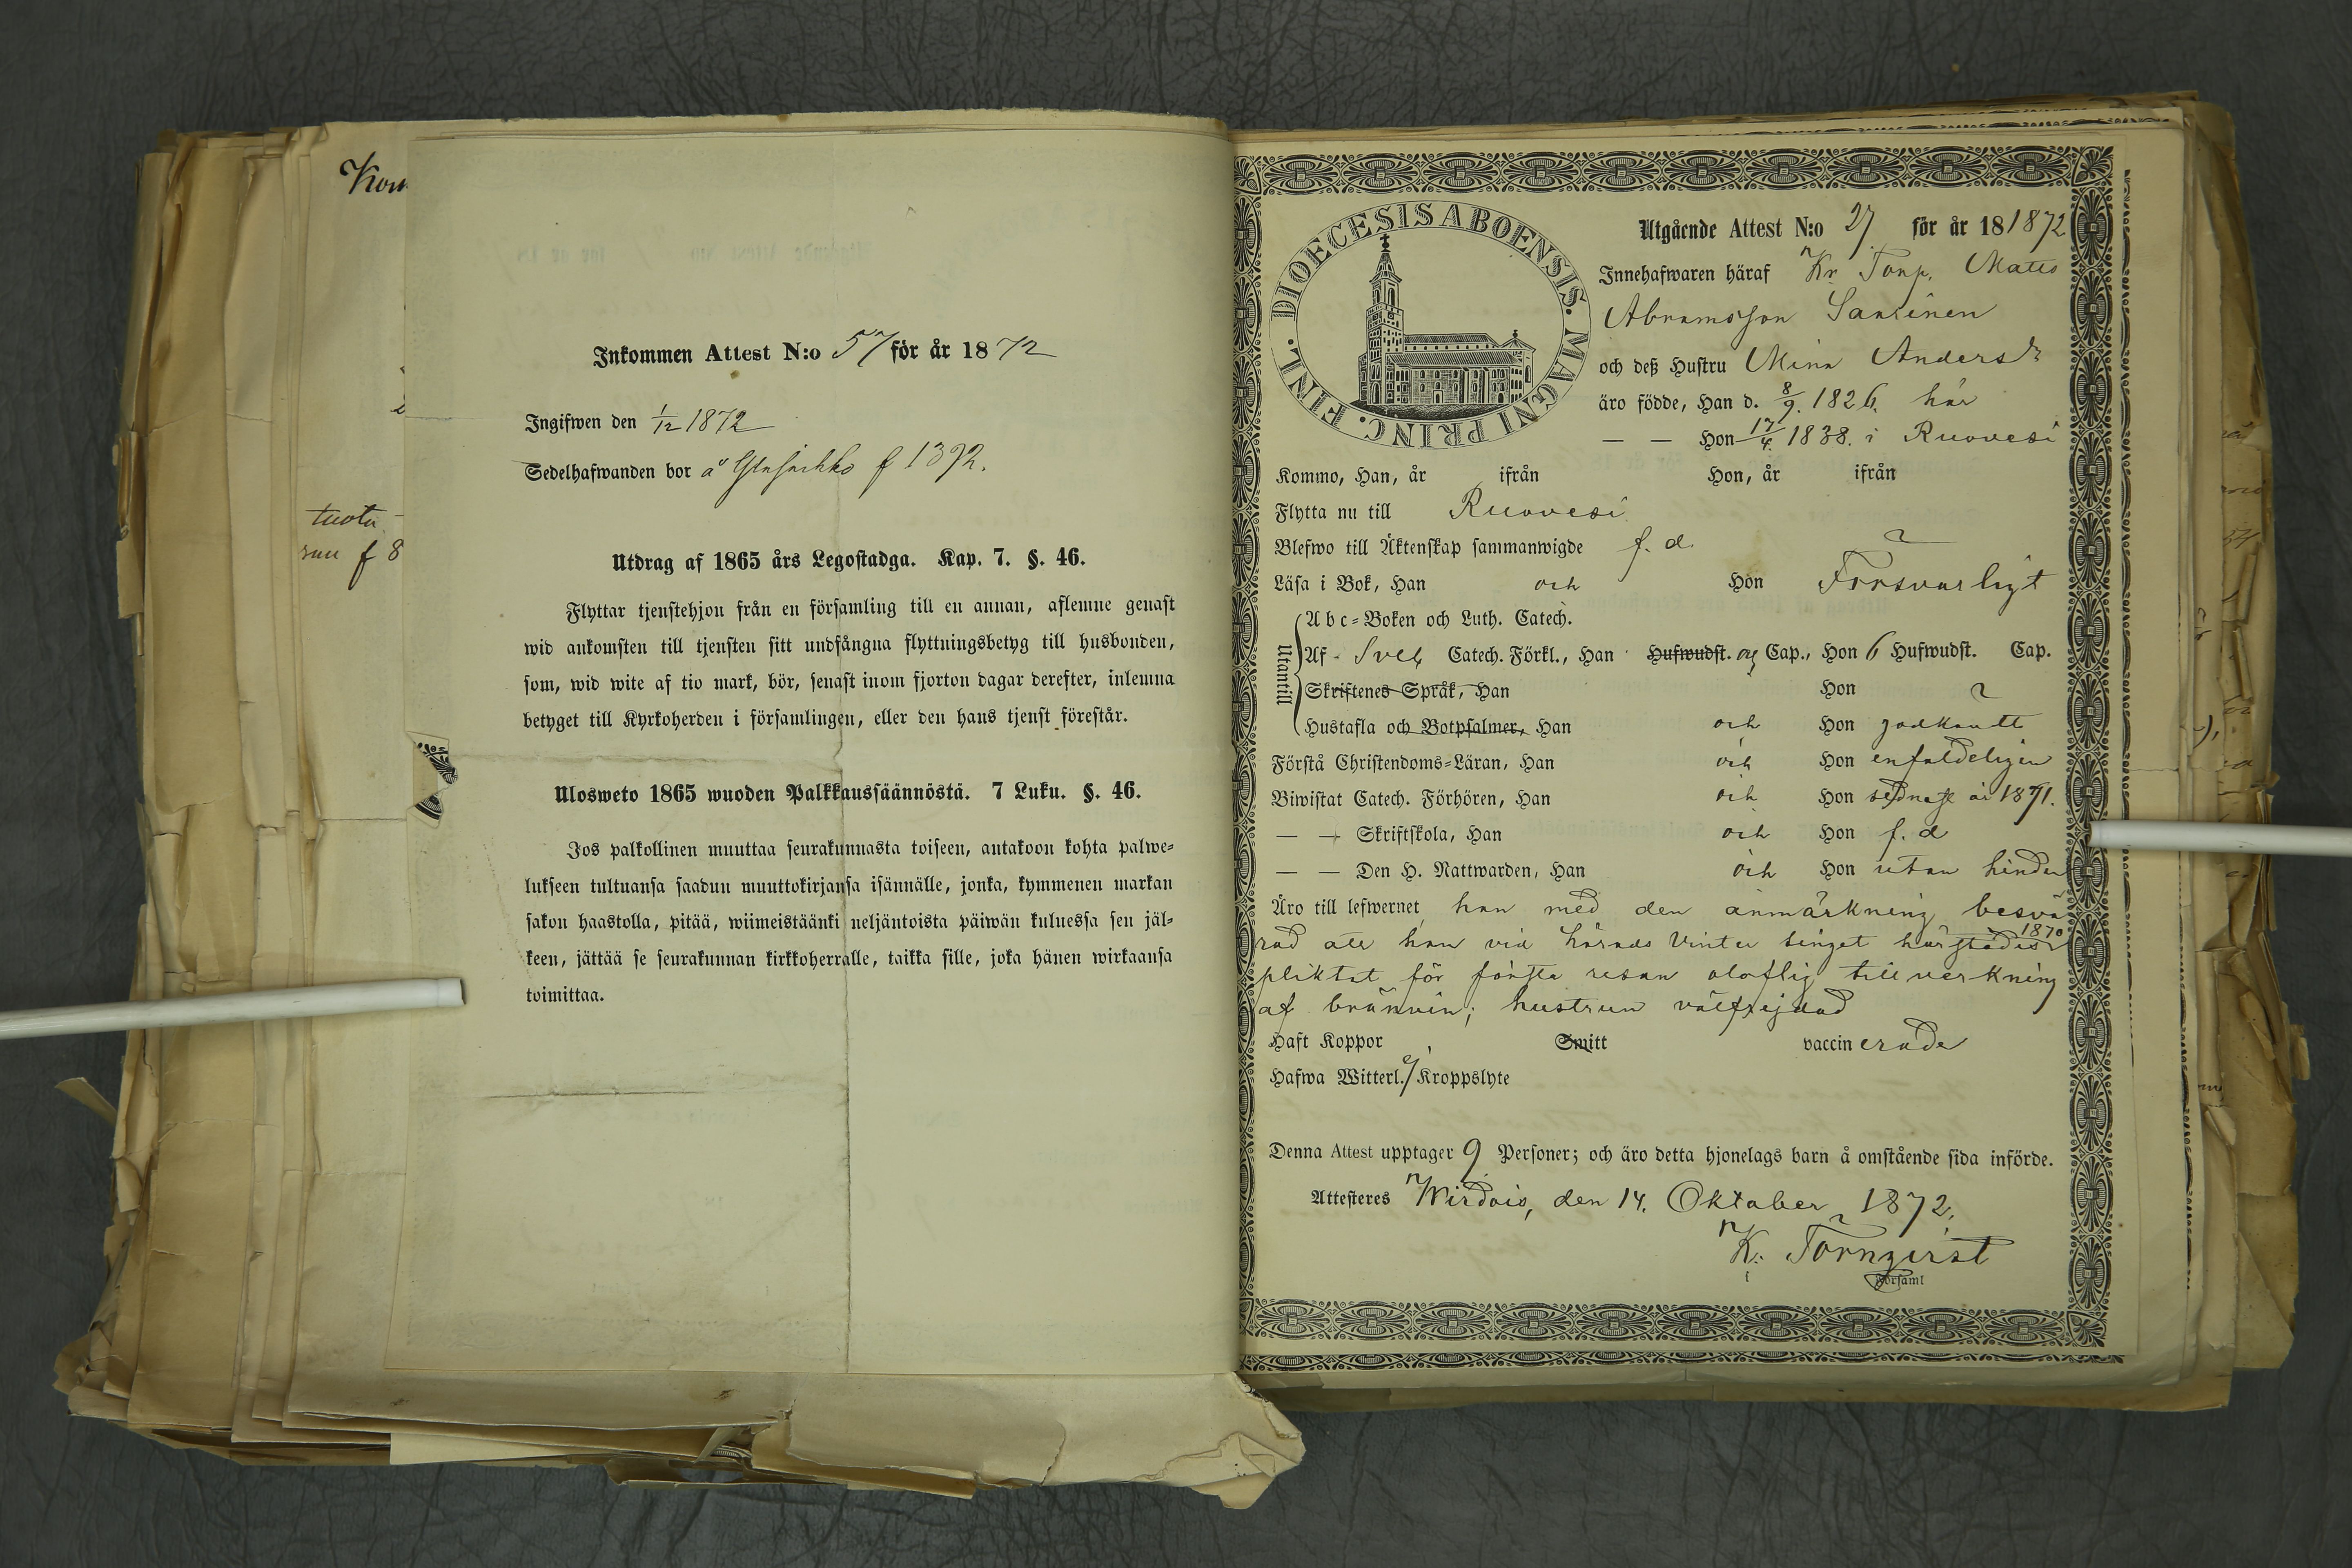 Kom
tuota
f 8
Inkommen Attest N:o 57 för år 1872
Ingifwen den 1/12 1872
Sedelhafwanden bor å f 1392.
Utdrag af 1865 års Legostadga. Kap. 7. §. 46.
Flyttar tjenstehjon från en församling till en annan, aflemne genast
wid ankomsten till tjensten sitt undfångna flyttningsbetyg till husbonden,
som, wid wite af tio mark, bör, senast inom fjorton dagar derefter, inlemna
betyget till Kyrkoherden i församlingen, eller den hans tjenst förestår.
Ulosweto 1865 wuoden Palkkaussäännöstä. 7 Luku. §. 46.
Jos palkollinen muuttaa seurakunnasta toiseen, antakoon kohta palwe-
lukseen tultuansa saadun muuttokirjansa isännälle, jonka, kymmenen markan
sakon haastolla, pitää, wiimeistäänki neljäntoista päiwän kuluessa sen jäl-
keen, jättää se seurakunnan kirkkoherralle, taikka sille, joka hänen wirkaansa
toimittaa.
DIOECESIS ABOENSIS. MAGNI PRINC. FINL.
Utgående Attest N:o 27 för år 181872
Innehafwaren häraf Kr Torp. Matts
Abramsson Saarinen
och deß Hustru Mina Andersdr
äro födde, Han d. 8/9. 1826. här
— — Hon 17/4. 1838. i Ruovesi
Kommo, Han, år ifrån Hon, år ifrån
Flytta nu till Ruovesi
Blefwo till Äktenskap sammanwigde f. d.
Läsa i Bok, Han och Hon Försvarligt
Utantill
Abc-Boken och Luth. Catech.
Af Sveb. Catech. Förkl., Han Hufwudst. och Cap., Hon 6 Hufwudst. Cap.
Skriftenes Språk, Han Hon
Hustafla och Botpsalmer, Han och Hon godkändt
Förstå Christendoms-Läran, Han och Hon enfaldeligen
Biwistat Catech. Förhören, Han och Hon sednast år 1871.
— — Skriftskola, Han och Hon f. d
— — Den H. Nattwarden, Han och Hon utan hinder
Äro till lefwernet han med den anmärkning besvä
rad att han vid härads Vinter tinget härstädes 1870
pliktat för första resan oloflig tillverkning
af brännvin; hustrun välfrejdad
Haft Koppor Smitt vaccinerade
Hafwa Witterl. ej Kroppslyte
Denna Attest upptager 9 Personer; och äro detta hjonelags barn å omstående sida införde.
Attesteras Wirdois, den 14. Oktober 1872.
K. Törnqvist
Församl